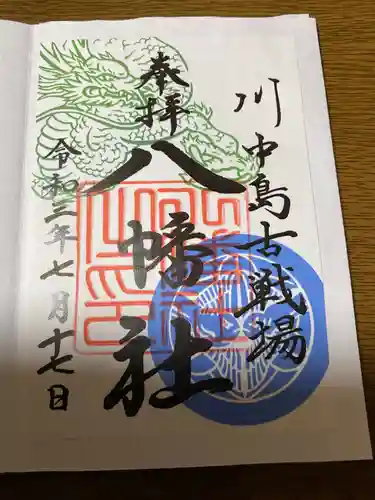 川中島古戦場
奉拝
八幡社
令和二年七月十七日